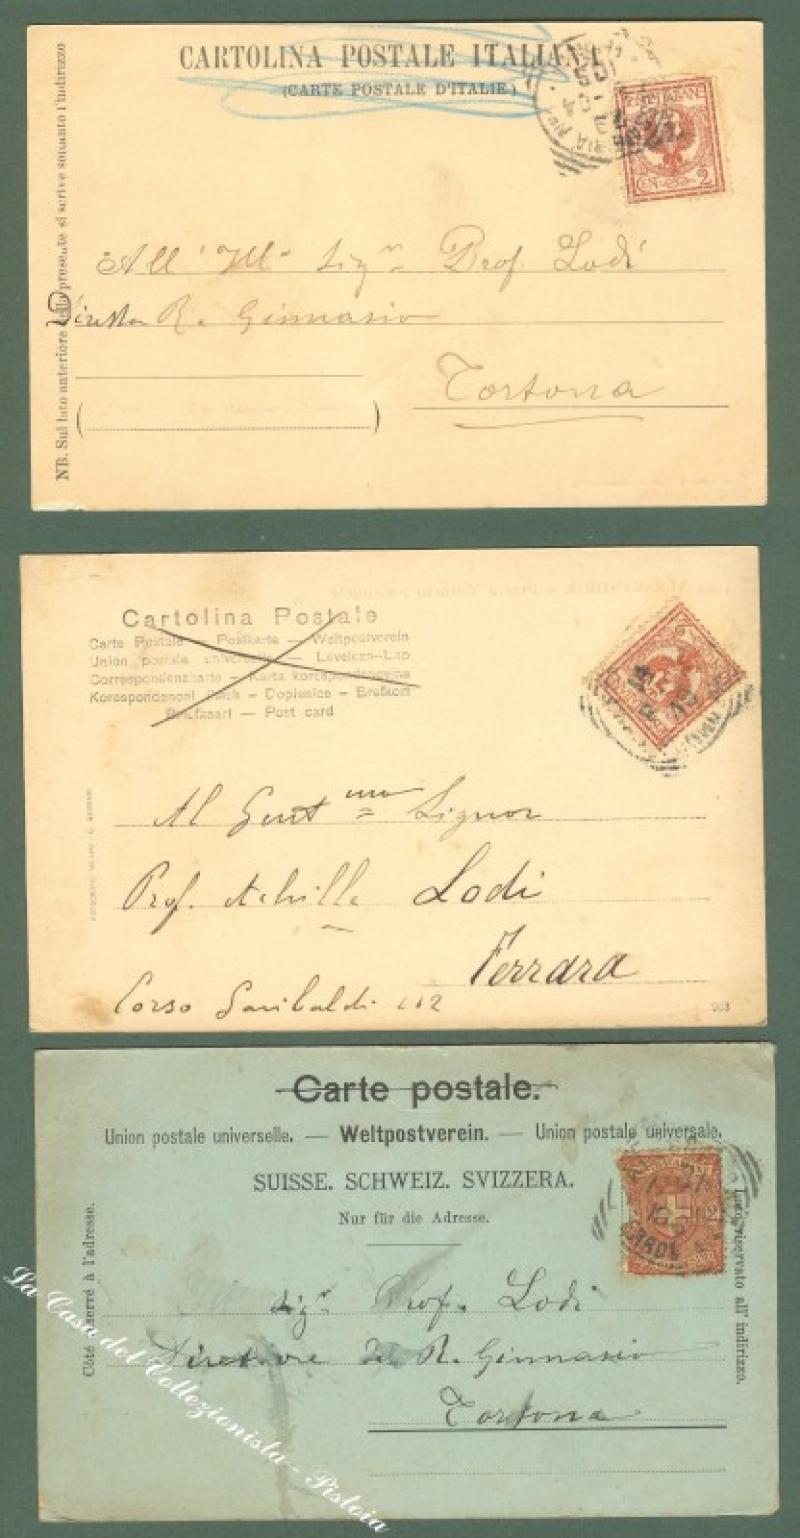 CARTOLINA POSTALE ITALIANA
(CARTE POSTALE D'ITALIE)
NB. Sul lato anteriore della presente si scrive soltanto l'indirizzo
POSTE ITALIANE
CENT. 2
All' Ill.º Sig.r Prof. Lodi
Direttor R. Ginnasio
Tortona
Cartolina Postale
Carte Postale – Postkarte – Weltpostverein
Union postale universelle – Levelezo-Lap
Correspondenzkarte – Karta korespondencyjna
Korespondencni listek – Dopisnice – Brefkort
Briefkaart – Post card
Al Gent.mo Signor
Prof. Achille Lodi
Ferrara
Corso Garibaldi 112
Carte postale.
Union postale universelle. — Weltpostverein. — Union postale universale.
SUISSE. SCHWEIZ. SVIZZERA.
Nur für die Adresse.
Côté réservé à l'adresse.
Lato riservato all' indirizzo.
Sig.r Prof. Lodi
Direttore del R. Ginnasio
Tortona
La Casa del Collezionista - Pistoia